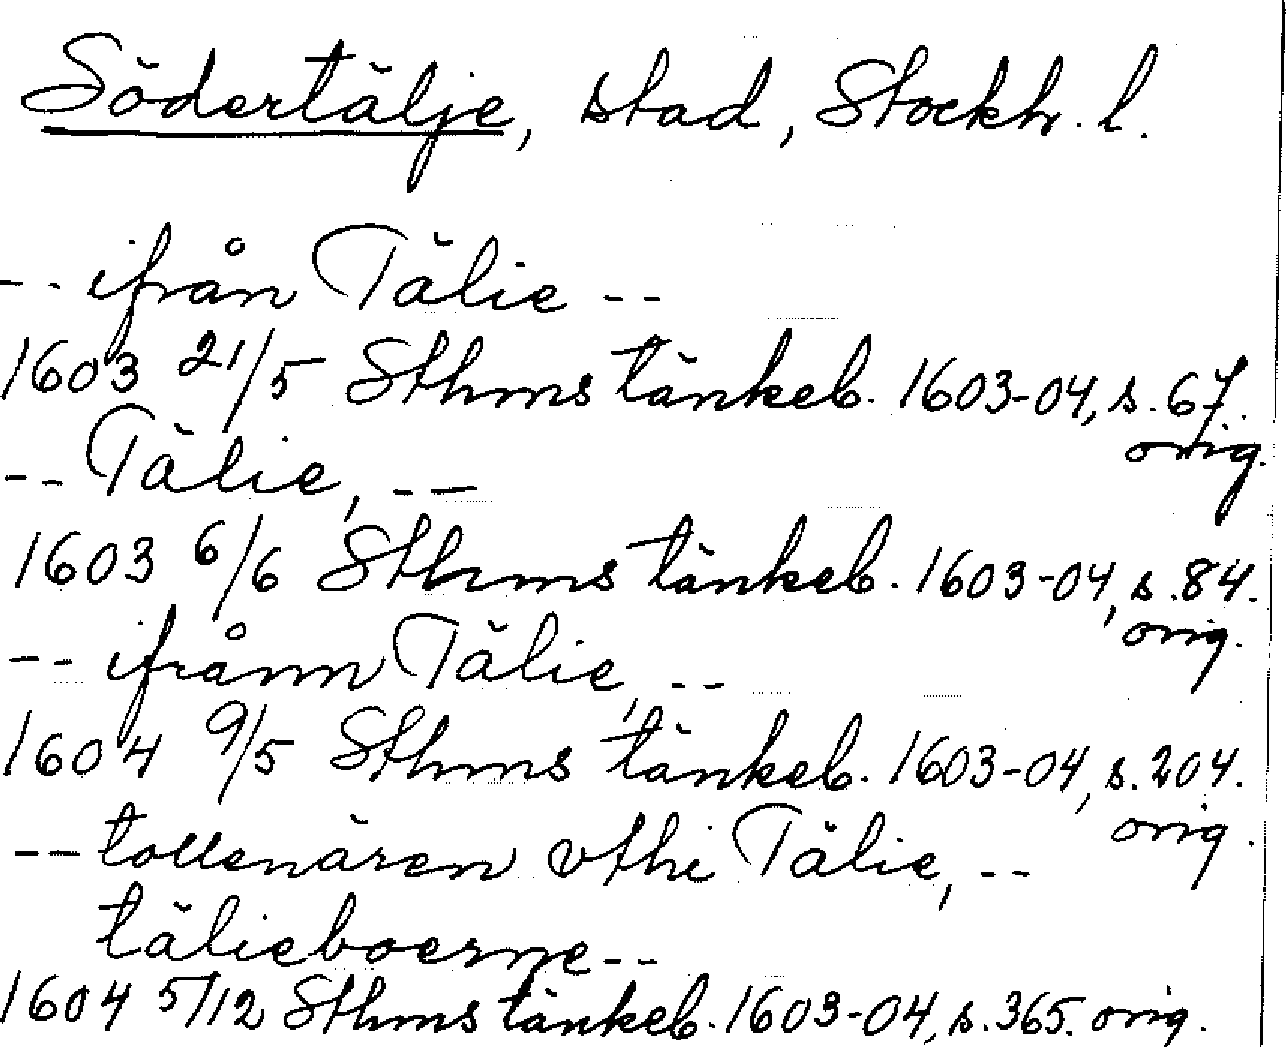 Södertälje, stad, Stockh. l.
-- ifrån Tälie --
1603 21/5 Sthms tänkeb. 1603-04, s. 67.
orig.
-- Tälie, --
1603 6/6 Sthms tänkeb. 1603-04, s. 84.
orig.
-- ifrånn Tälie, --
1604 9/5 Sthms tänkeb. 1603-04, s. 204.
orig.
-- tollenären vthi Tälie, --
tälieboerne --
1604 5/12 Sthms tänkeb. 1603-04, s. 365. orig.